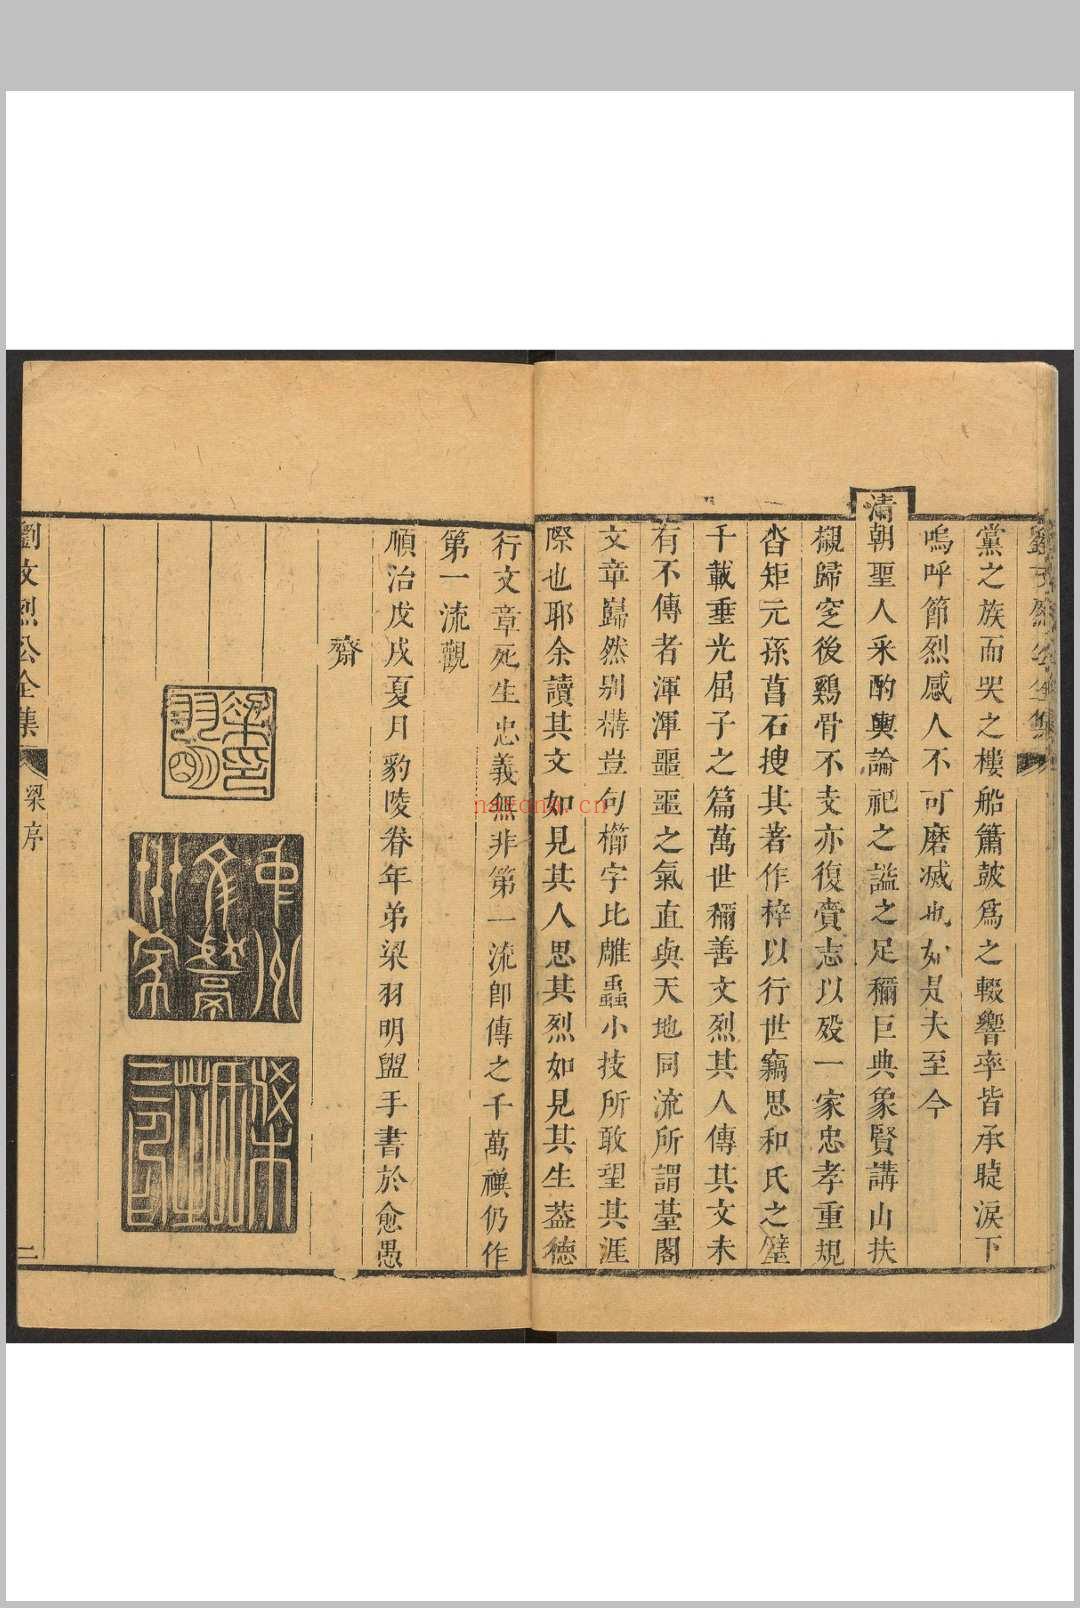 黨之族而哭之樓船簫皷爲之輟響率皆承睫淚下
嗚呼節烈感人不可磨滅也如是夫至今
清朝聖人采酌輿論祀之諡之足稱巨典象賢講山扶
櫬歸窆後鷄骨不支亦復賫志以歿一家忠孝重規
沓矩元孫菖石搜其著作梓以行世竊思和氏之璧
千載垂光屈子之篇萬世稱善文烈其人傳其文未
有不傳者渾渾噩噩之氣直與天地同流所謂䑓閣
文章巋然别構豈句櫛字比雕蟲小技所敢望其涯
際也耶余讀其文如見其人思其烈如見其生葢德
行文章死生忠義無非第一流卽傳之千萬禩仍作
第一流觀
順治戊戌夏月豹陵眷年弟梁羽明盥手書於愈愚
齋
梁印羽明
劉文烈公全集
梁序
二
nanona.cn